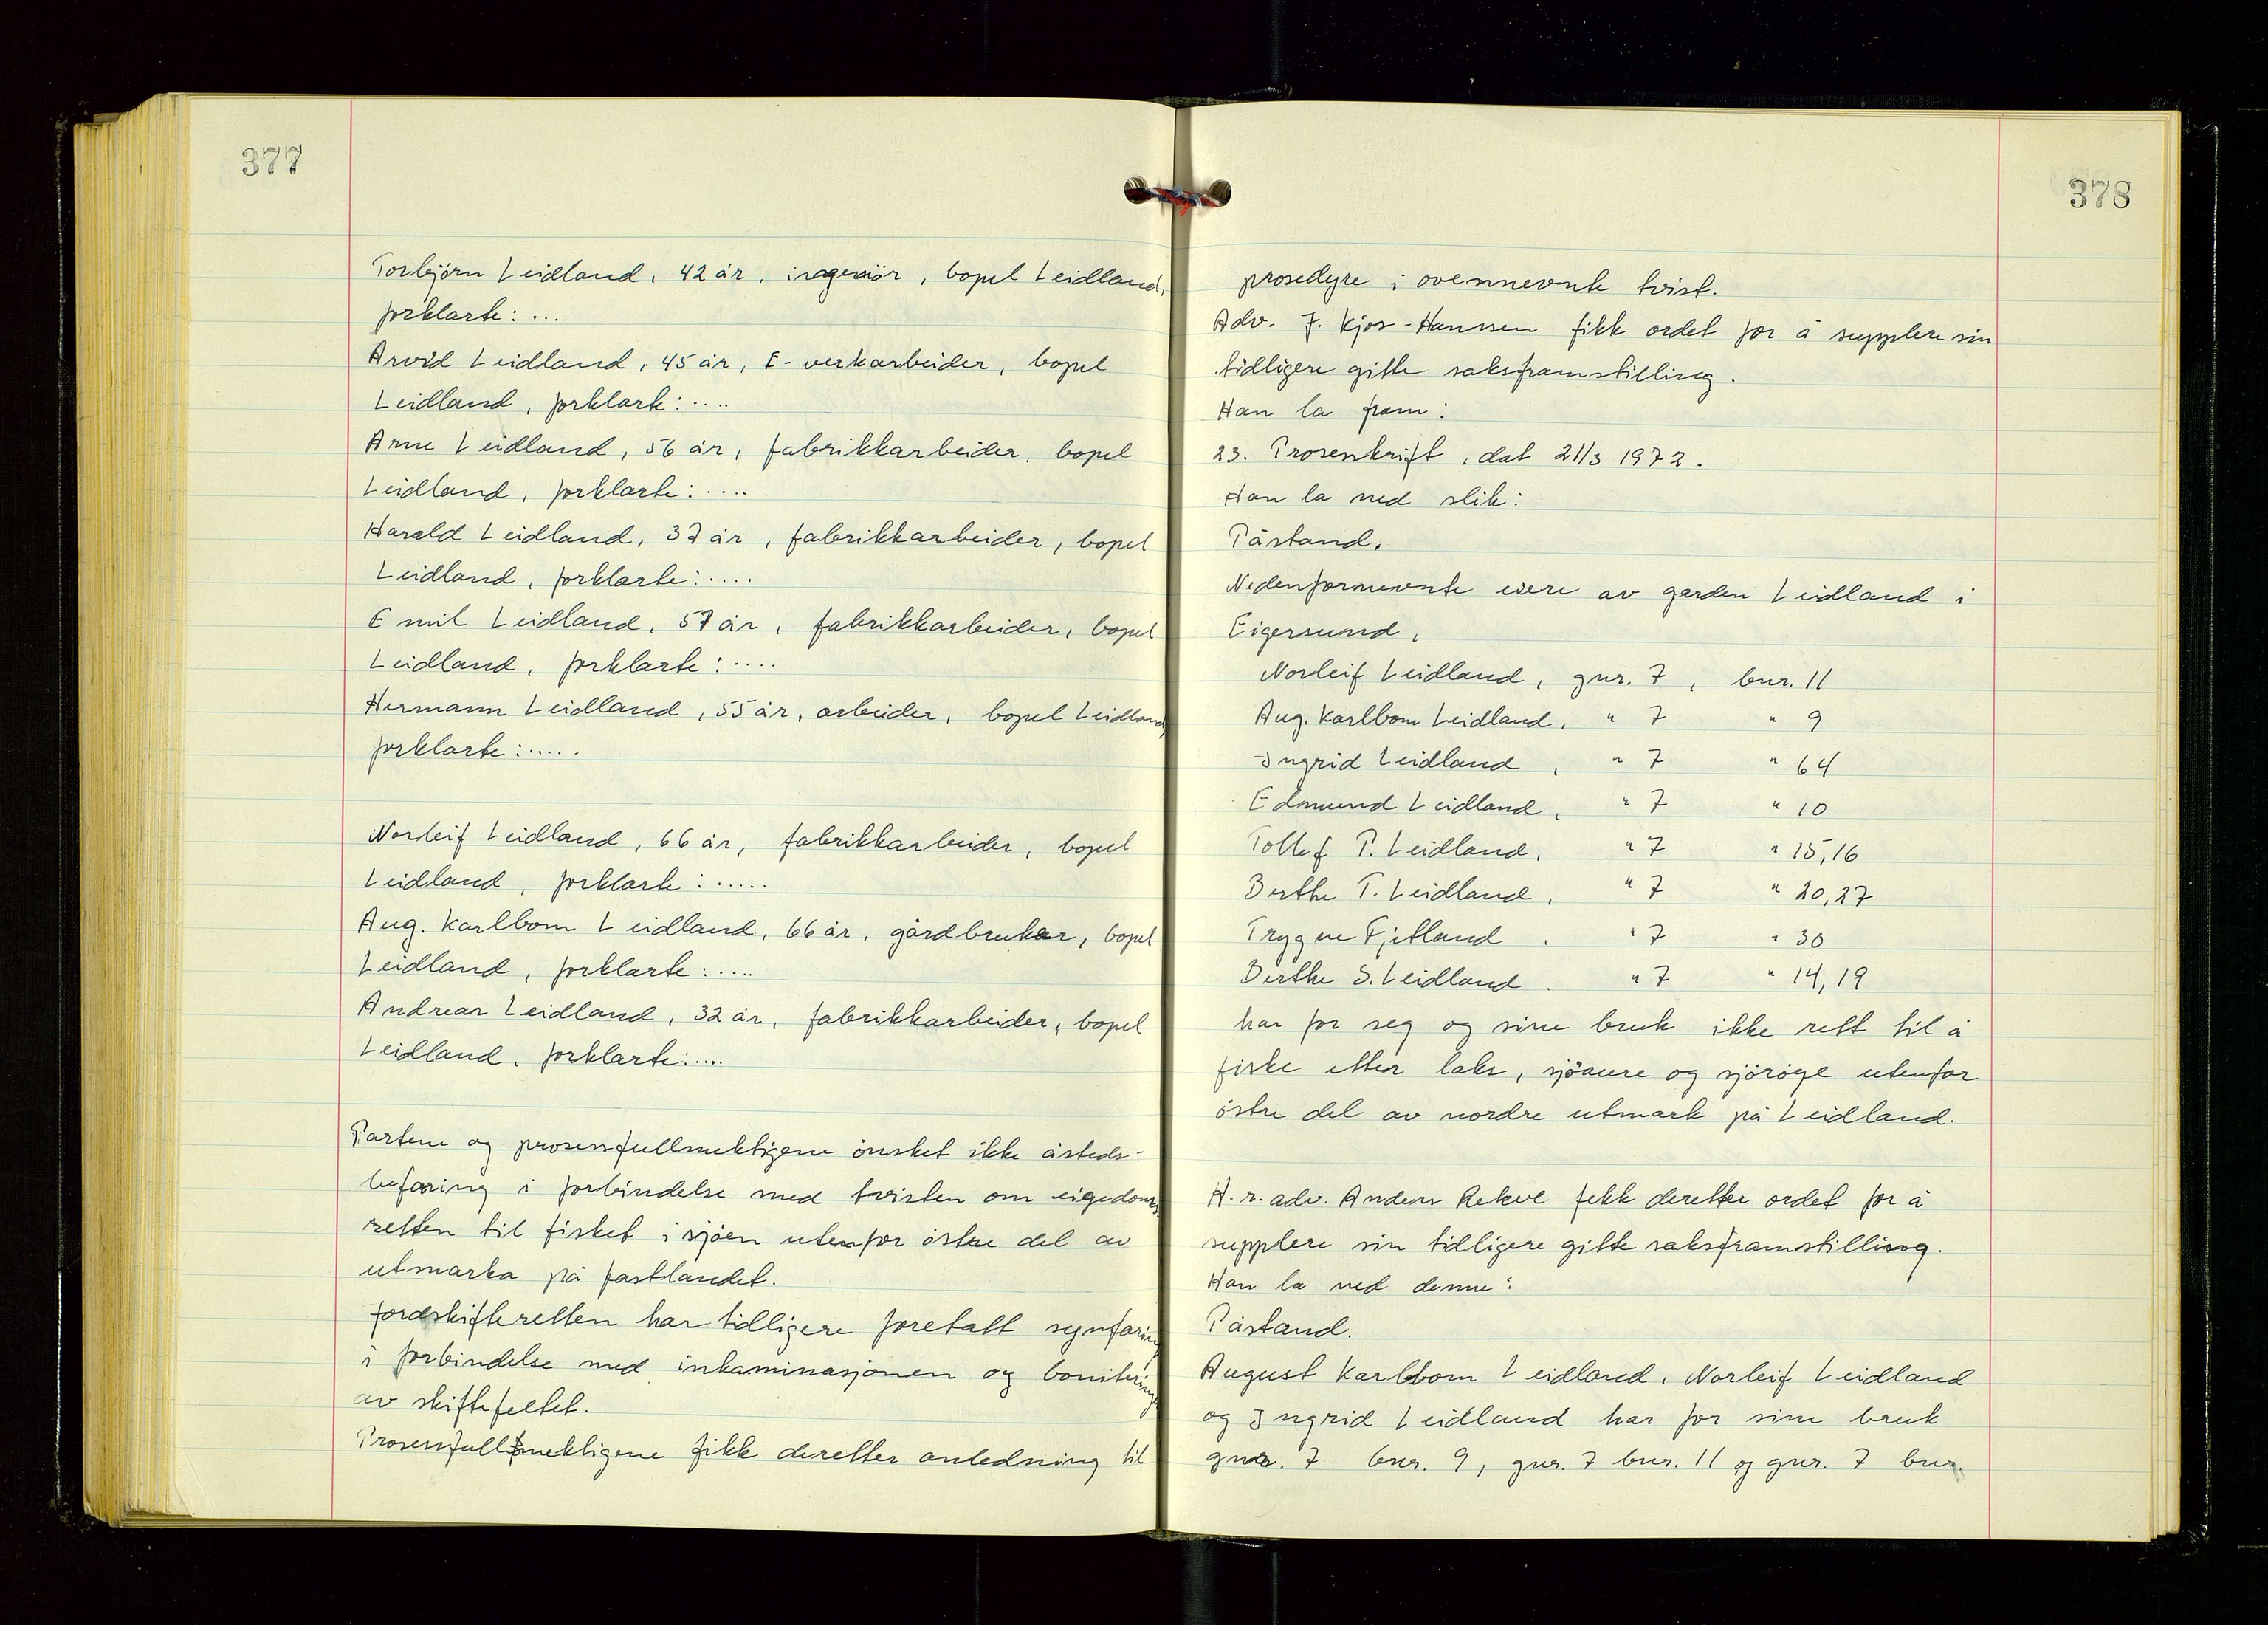 377
Torbjörn Leidland, 42 år, ingeniör, bopel Leidland,
forklarte: ...
Arvid Leidland, 45 år, E-verkarbeider, bopel
Leidland, forklarte: ....
Arne Leidland, 56 år, fabrikkarbeider, bopel
Leidland, forklarte: ....
Harald Leidland, 37 år, fabrikkarbeider, bopel
Leidland, forklarte: ....
Emil Leidland, 57 år, fabrikkarbeider, bopel
Leidland, forklarte: ....
Hermann Leidland, 55 år, arbeider, bopel Leidland
forklarte: .....
Norleif Leidland, 66 år, fabrikkarbeider, bopel
Leidland, forklarte: .....
Aug. Karlbom Leidland, 66 år, gårdbruker, bopel
Leidland, forklarte: ....
Andreas Leidland, 32 år, fabrikkarbeider, bopel
Leidland. forklarte: ....
Partene og prosessfullmektigene önsket ikke åsteds-
befaring i forbindelse med tvisten om eigedoms
retten til fisket i sjöen utenfor östre del av
utmarka på fastlandet.
Jordskifteretten har tidligere foretatt synfaring
i forbindelse med inkaminasjonen og bonitering
av skiftefeltet.
Prosessfullmektigene fikk deretter anledning til
378
prosedyre i ovennevnte tvist.
Adv. J. Kjos-Hanssen fikk ordet for å supplere sin
tidligere gitte saksframstilling.
Han la fram:
23. Prosesskrift, dat 21/3 1972.
Han la ned slik:
Påstand.
Nedenfornevnte eiere av garden Leidland i
Eigersund,
Norleif Leidland, gnr. 7, bnr. 11
Aug. Karlbom Leidland, " 7 " 9
Ingrid Leidland, " 7 " 64
Edmund Leidland, " 7 " 10
Tollef P. Leidland, " 7 " 15,16
Berthe T. Leidland, " 7 " 20,27
Trygve Fjetland, " 7 " 30
Berthe S. Leidland. " 7 " 14,19
har for seg og sine bruk ikke rett til å
fiske etter laks, sjöaure og sjöröye utenfor
östre del av nordre utmark på Leidland.
H.r.adv. Anders Rekve fekk deretter ordet for å
supplere sin tidligere gitte saksframstilling.
Han la ned denne:
Påstand.
August Karlbom Leidland, Norleif Leidland
og Ingrid Leidland har for sine bruk
gnr. 7 bnr. 9, gnr. 7 bnr. 11 og gnr. 7 bnr.